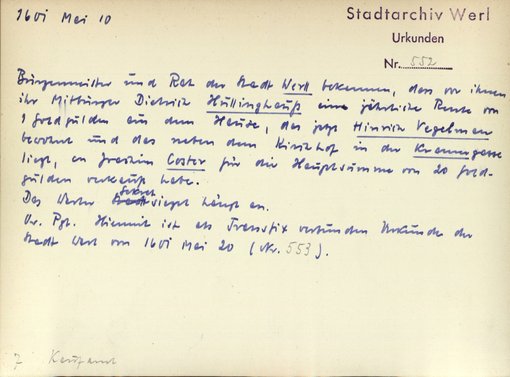 1601 Mai 10
Stadtarchiv Werl
Urkunden
Nr. 552
Bürgermeister und Rat der Stadt Werl bekennen, dass vor ihnen
ihr Mitbürger Dietrich Hüllinghauß eine jährliche Rente von
1 Goldgulden aus dem Hause, das jetzt Hinrich Vegelman
bewohnt und das neben dem Kirchhof in der Kramgasse
liegt, an Joachim Coster für die Hauptsumme von 20 Gold-
gulden verkauft habe.
Das Werler Sekretsiegel hängt an.
Or. Pgt. Hiermit ist als Transfix verbunden Urkunde der
Stadt Werl von 1601 Mai 20 (Nr. 553).
7 Kaufamt